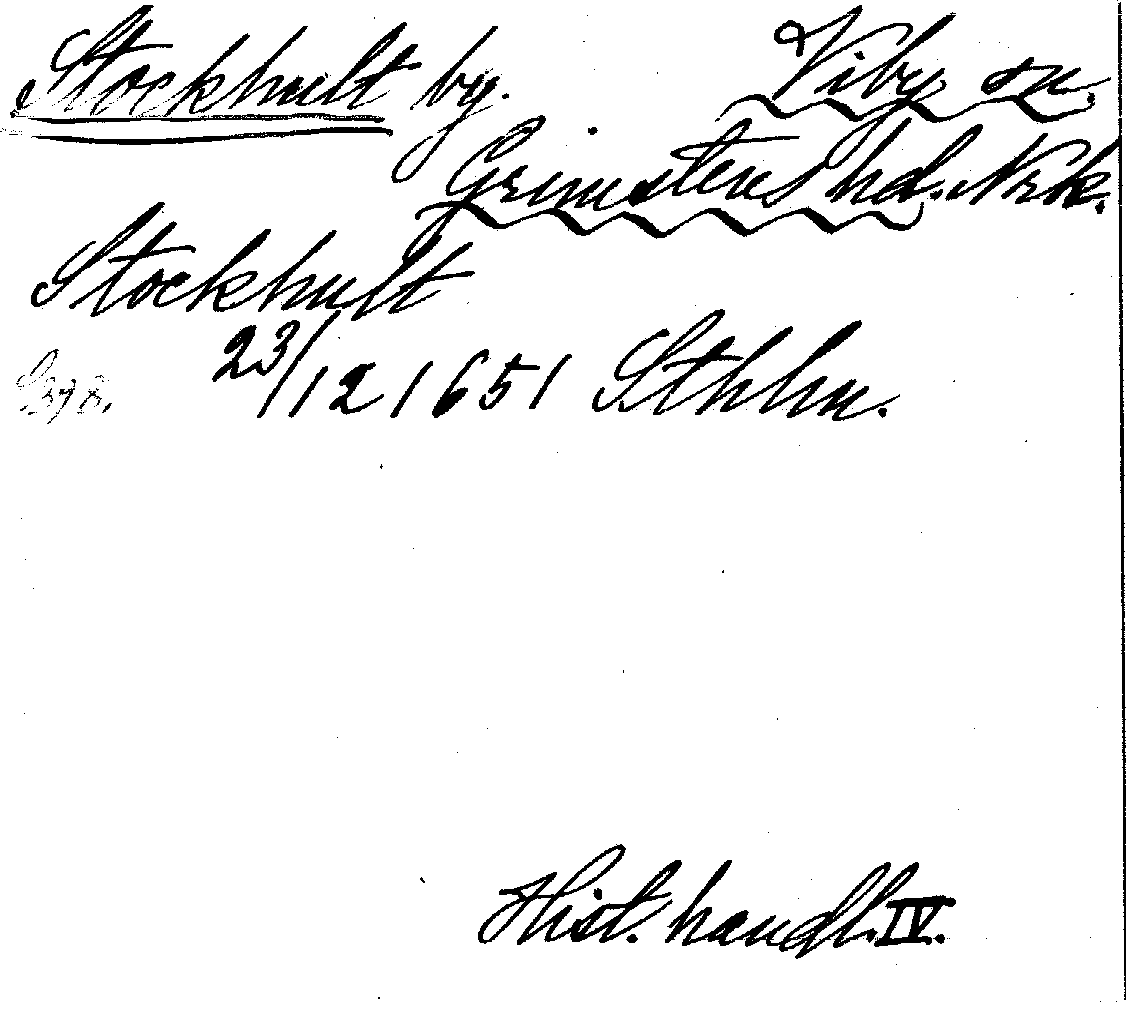 Stockhult by. Viby sn.
Grimstens hd. Nrk.
Stockhult
S. 378. 23/12 1651 Sthlm.
Hist. handl. IV.